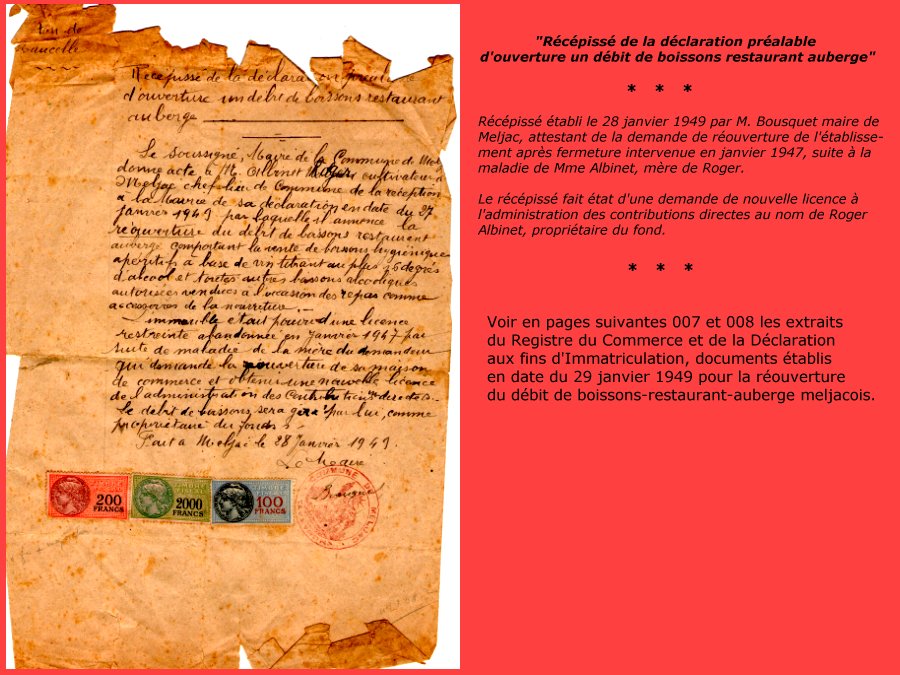 ton de
aucelle
Récépissé de la déclaration préalable
d'ouverture un débit de boissons restaurant
auberge
Le soussigné, Maire de la Commune de Mel
donne acte à M. Albinet Roger cultivateur à
Meljac chef-lieu de Commune de la réception
à la Mairie de sa déclaration en date du 27
janvier 1949 par laquelle il annonce la
réouverture du débit de boissons restaurant
auberge comportant la vente de boissons hygiéniques
apéritifs à base de vin titrant au plus degrés
d'alcool et toutes autres boissons alcooliques
autorisées vendues à l'occasion des repas comme
accessoires de la nourriture.
immeuble était pourvu d'une licence
restreinte abandonnée en Janvier 1947 par
suite de maladie de la mère du demandeur
qui demande la réouverture de sa maison
de commerce et obtenir une nouvelle licence
de l'administration des Contributions directes
Le débit de boissons sera géré par lui, comme
propriétaire du fonds
Fait à Meljac le 28 Janvier 1949.
Le Maire
Bousquet
COMMUNE DE MELJAC
200
FRANCS
TIMBRE
FISCAL
2000
FRANCS
100
FRANCS
"Récépissé de la déclaration préalable
d'ouverture un débit de boissons restaurant auberge"
* * *
Récépissé établi le 28 janvier 1949 par M. Bousquet maire de
Meljac, attestant de la demande de réouverture de l'établisse-
ment après fermeture intervenue en janvier 1947, suite à la
maladie de Mme Albinet, mère de Roger.
Le récépissé fait état d'une demande de nouvelle licence à
l'administration des contributions directes au nom de Roger
Albinet, propriétaire du fond.
* * *
Voir en pages suivantes 007 et 008 les extraits
du Registre du Commerce et de la Déclaration
aux fins d'Immatriculation, documents établis
en date du 29 janvier 1949 pour la réouverture
du débit de boissons-restaurant-auberge meljacois.